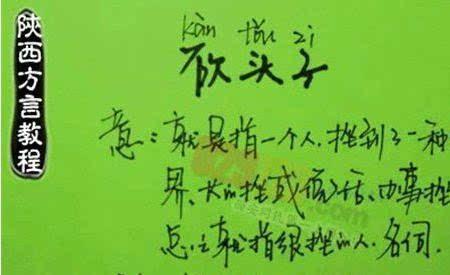 陕西方言教程
kàn tóu zi
砍头子
意:就是指一个人.挫到了一种
界、长的挫或说话、办事挫
点.之就指很挫的人.名词.